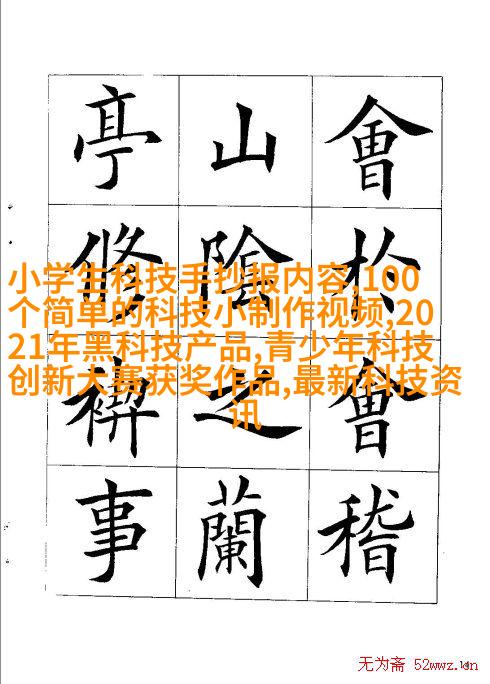 會於會稽
山陰之蘭
亭脩禊事
小学生科技手抄报内容,100
个简单的科技小制作视频,20
21年黑科技产品,青少年科技
创新大赛获奖作品,最新科技资
讯
无为斋 52wwz.cn